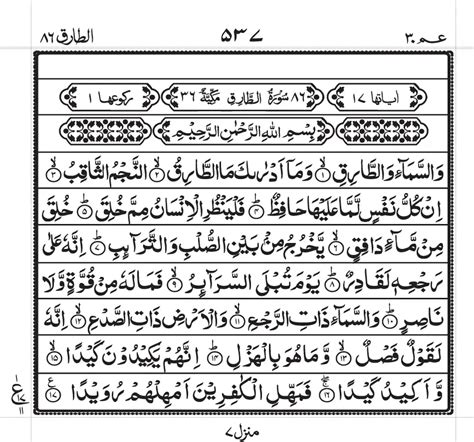 عـم ٣٠ ٥٣٧ الطارق ٨٦
اٰیاتها ١٧ ٨٦ سُوْرَةُ الطَّارِقِ مَكِّيَّةٌ ٣٦ رکوعها ١
بِسْمِ اللّٰهِ الرَّحْمٰنِ الرَّحِيْمِ
وَالسَّمَآءِ وَالطَّارِقِ ۙ﴿١﴾ وَمَآ اَدْرٰىكَ مَا الطَّارِقُ ۙ﴿٢﴾ النَّجْمُ الثَّاقِبُ ۙ﴿٣﴾
اِنْ كُلُّ نَفْسٍ لَّمَّا عَلَيْهَا حَافِظٌ ؕ﴿٤﴾ فَلْيَنْظُرِ الْاِنْسَانُ مِمَّ خُلِقَ ؕ﴿٥﴾ خُلِقَ
مِنْ مَّآءٍ دَافِقٍ ۙ﴿٦﴾ يَّخْرُجُ مِنْۢ بَيْنِ الصُّلْبِ وَالتَّرَآئِبِ ؕ﴿٧﴾ اِنَّهٗ عَلٰى
رَجْعِهٖ لَقَادِرٌ ؕ﴿٨﴾ يَوْمَ تُبْلَى السَّرَآئِرُ ۙ﴿٩﴾ فَمَا لَهٗ مِنْ قُوَّةٍ وَّلَا
نَاصِرٍ ؕ﴿١٠﴾ وَالسَّمَآءِ ذَاتِ الرَّجْعِ ۙ﴿١١﴾ وَالْاَرْضِ ذَاتِ الصَّدْعِ ۙ﴿١٢﴾ اِنَّهٗ
لَقَوْلٌ فَصْلٌ ۙ﴿١٣﴾ وَّمَا هُوَ بِالْهَزْلِ ؕ﴿١٤﴾ اِنَّهُمْ يَكِيْدُوْنَ كَيْدًا ۙ﴿١٥﴾
وَّاَكِيْدُ كَيْدًا ۚۖ﴿١٦﴾ فَمَهِّلِ الْكٰفِرِيْنَ اَمْهِلْهُمْ رُوَيْدًا ﴿١٧﴾
١ ع ١٧ ١١
منزل ٧